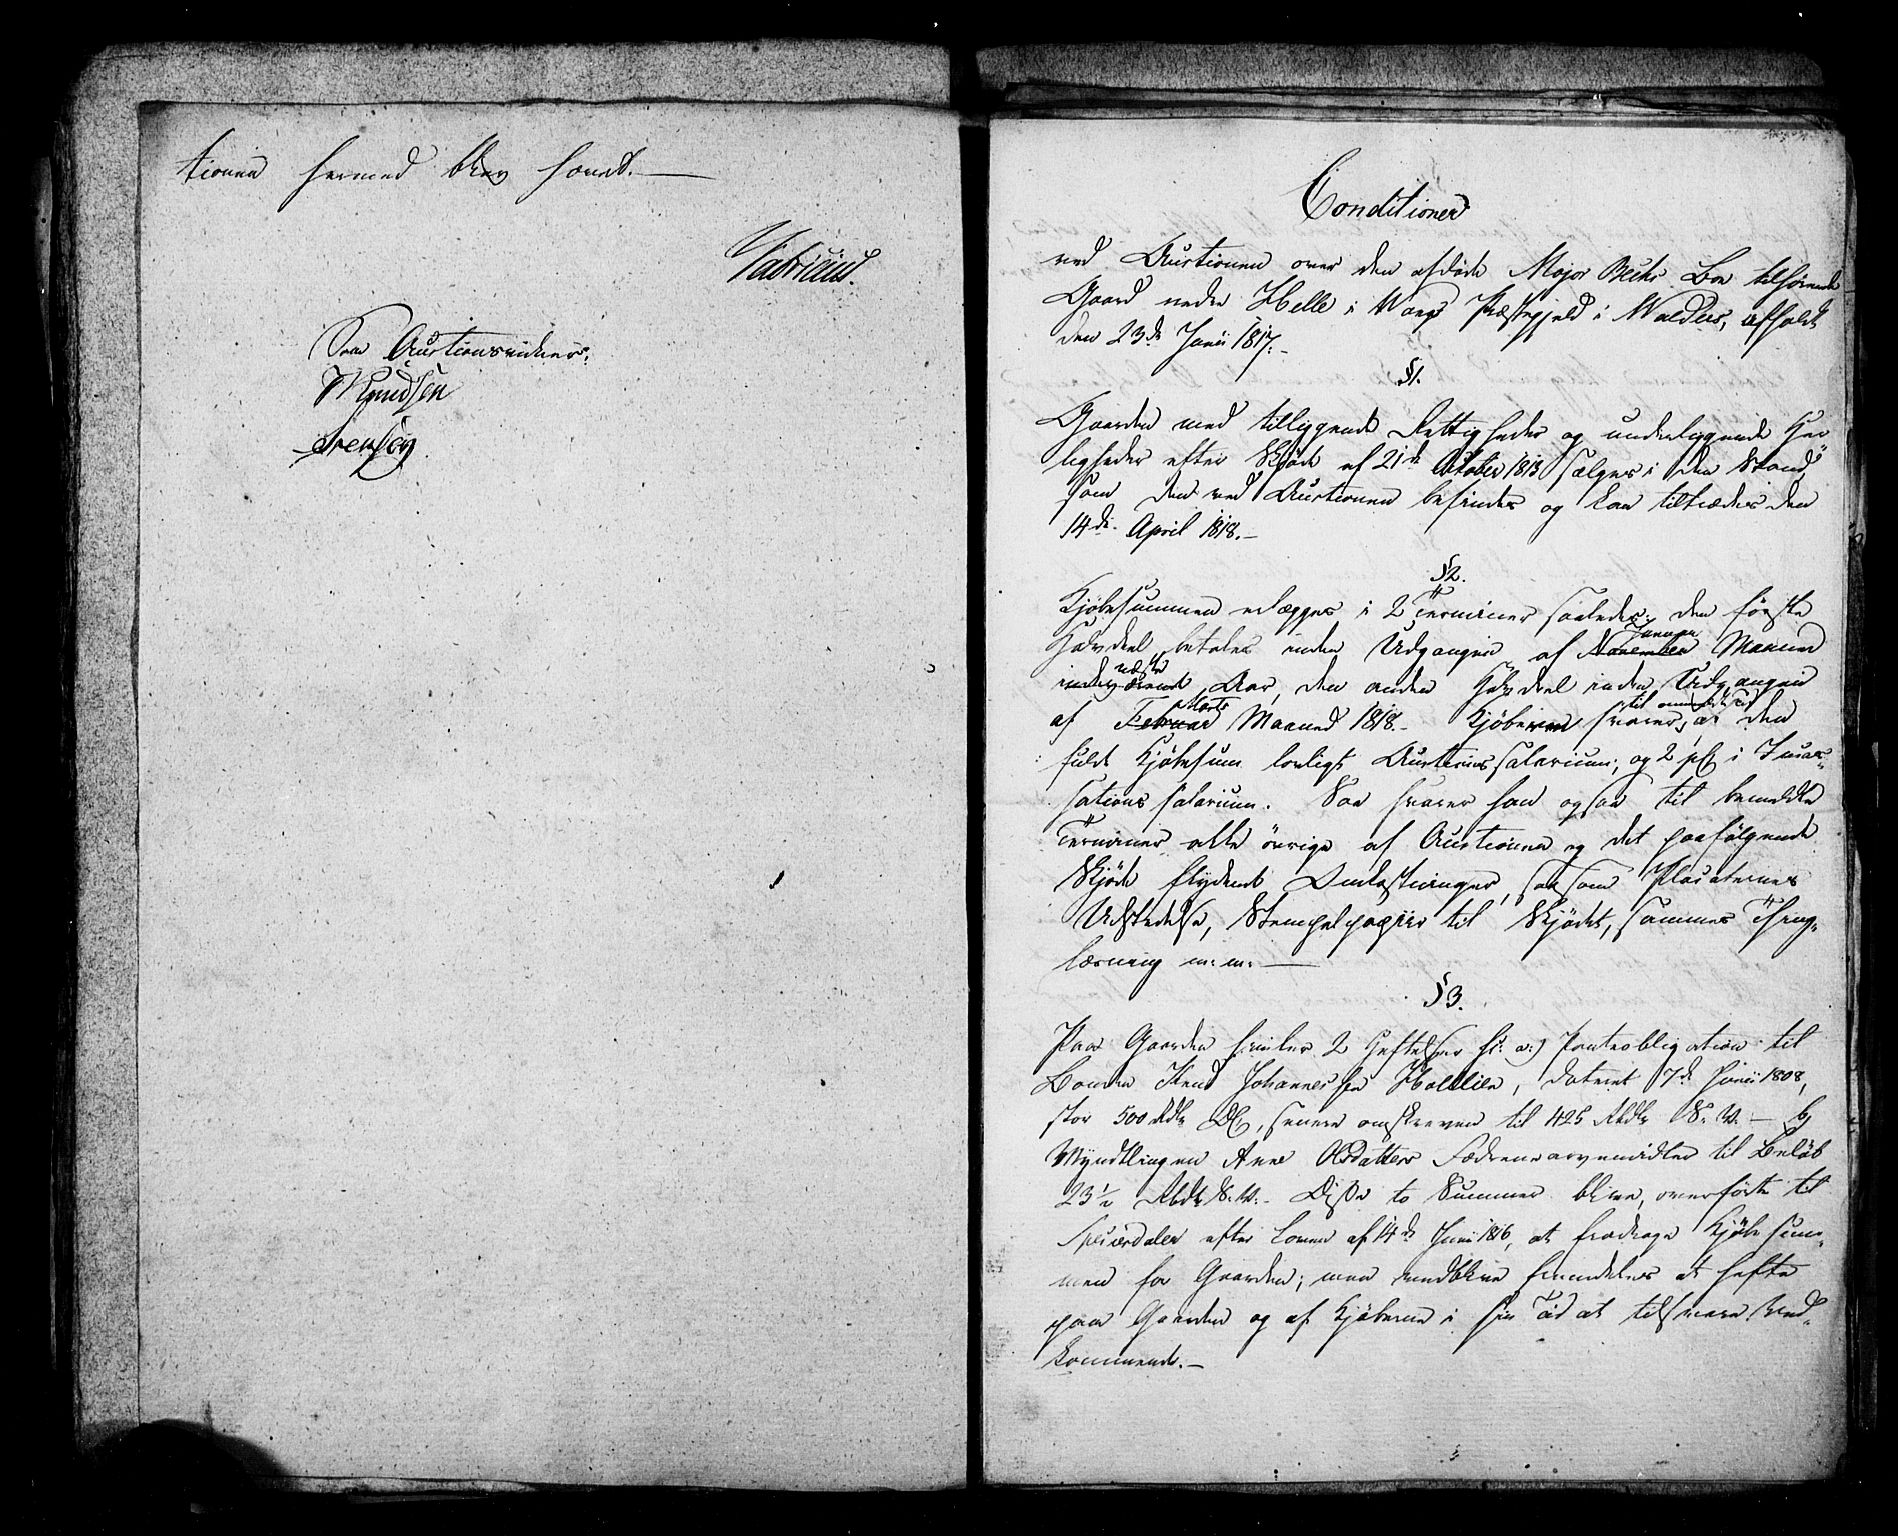 tionen hermed blev hævet. —
Fabricius.
Som Auctionsvidner:
Knudsen
Svensen
Conditioner
ved Auctionen over den afdøde Major Beichs Boe tilhørende
Gaard nedre Helle i Vangs Præstegjeld i Valders, afholdt
den 23de Junii 1817.—
§1.
Gaarden med tilliggende Rettigheder og underliggende Her„
ligheder efter Skjøde af 21de October 1813 sælges i den Stand
som den ved Auctionen befindes og kan tiltrædes den
14de April 1818.—
§2.
Kjøbesummen erlægges i 2 Terminer saaledes: den første
Halvdeel betales inden Udgangen af November Januar Maaned
indeværende næste Aar, den anden Halvdeel inden Udgangen
af Februar Marts Maaned 1818.— Kjøberen svarer, til ommeldte Tid af den
fulde Kjøbesum lovligt Auctionssalarium, og 2 pCt i Incas„
sations salarium. Saa svarer han ogsaa til bemeldte
Terminer alle øvrige af Auctionen og det paafølgende
Skjøde flydende Omkostninger, saasom Placaternes
Udstedelse, Stempelpapiir til Skjødet, sammes Thing„
læsning m: m: —
§3.
Paa Gaarden hviler 2 Heftelser a:) Panteobligation til
Johannessen datteret 7de Junii 1808,
stor 500 Rdlr DC, senere omskreven til 425 Rbdlr S. V. — b)
Myndtlingen Anne Olsdatters Fædrenearvemidler til Beløb
23½ Rbdlr S. V.— Disse to Summer blive, overførte til
Speciesdaler efter Loven af 14de Junii 1816, at fradrage Kjøbesum„
men for Gaarden; men vedblive fremdeles at hefte
paa Gaarden og af Kjøberen i sin Tid at tilsvare Ved„
kommende.—